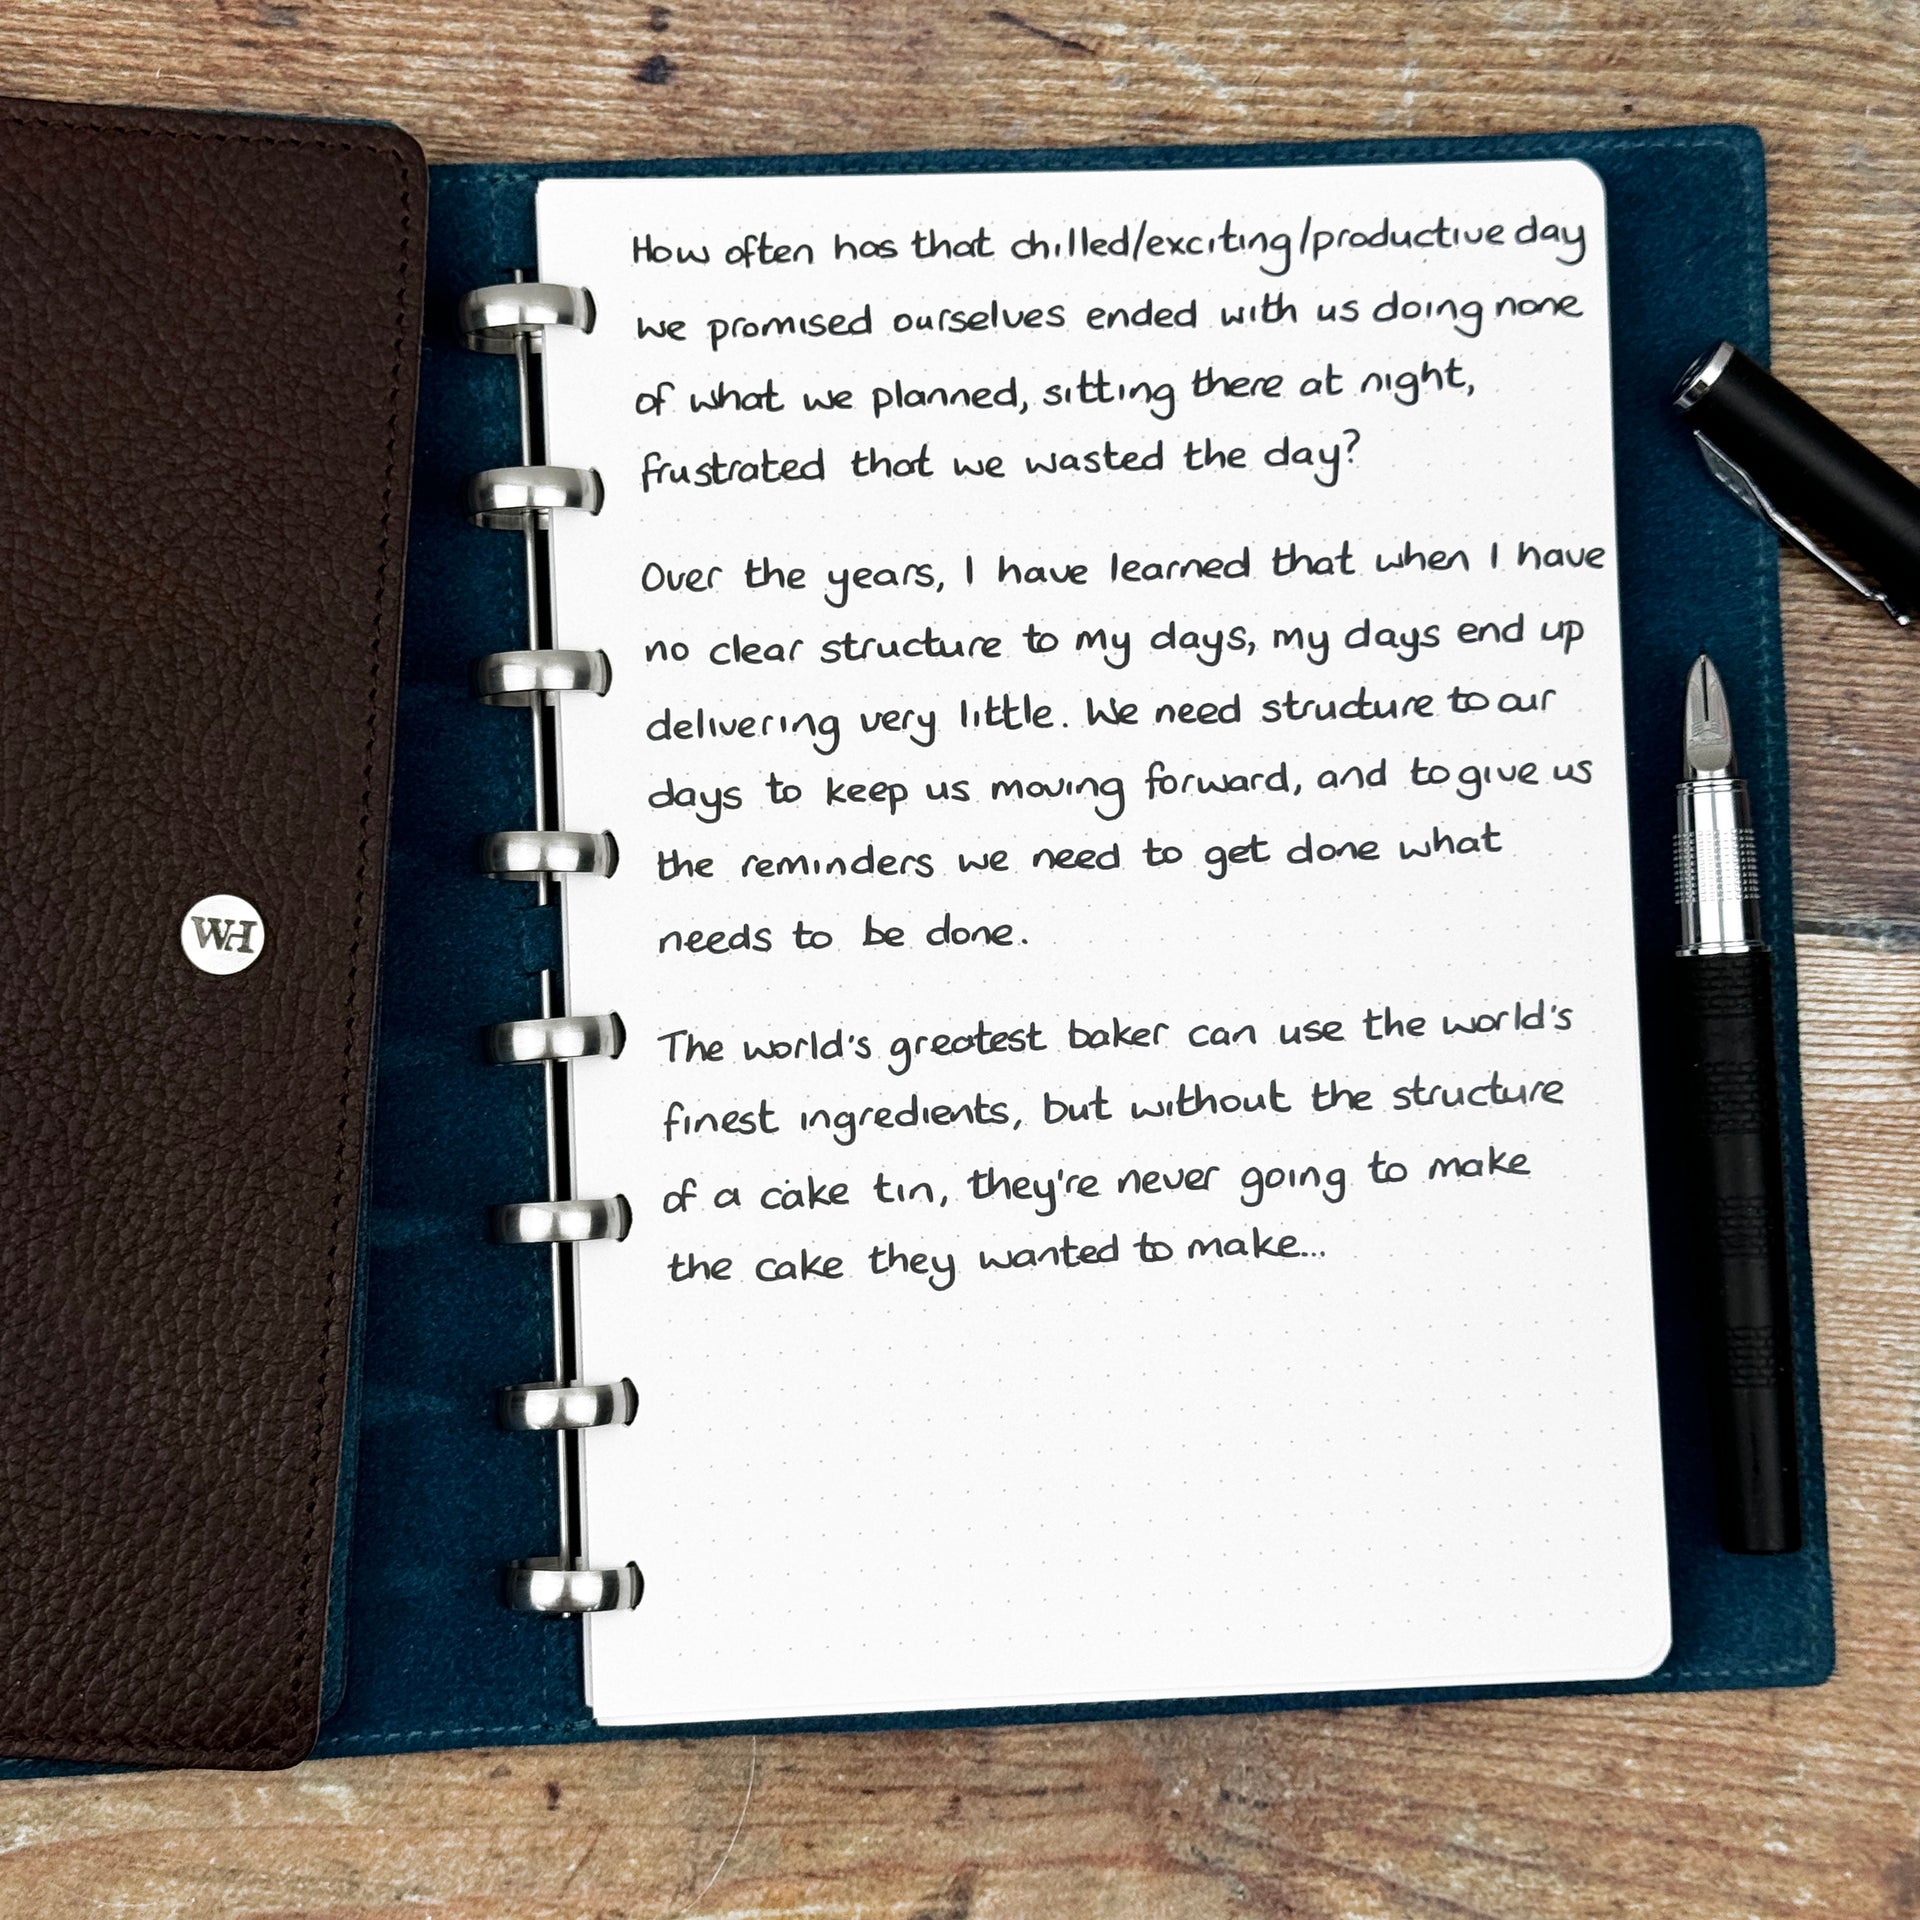 How often has that chilled/exciting/productive day
we promised ourselves ended with us doing none
of what we planned, sitting there at night,
frustrated that we wasted the day?
Over the years, I have learned that when I have
no clear structure to my days, my days end up
delivering very little. We need structure to our
days to keep us moving forward, and to give us
the reminders we need to get done what
needs to be done.
The world's greatest baker can use the world's
finest ingredients, but without the structure
of a cake tin, they're never going to make
the cake they wanted to make...
WH